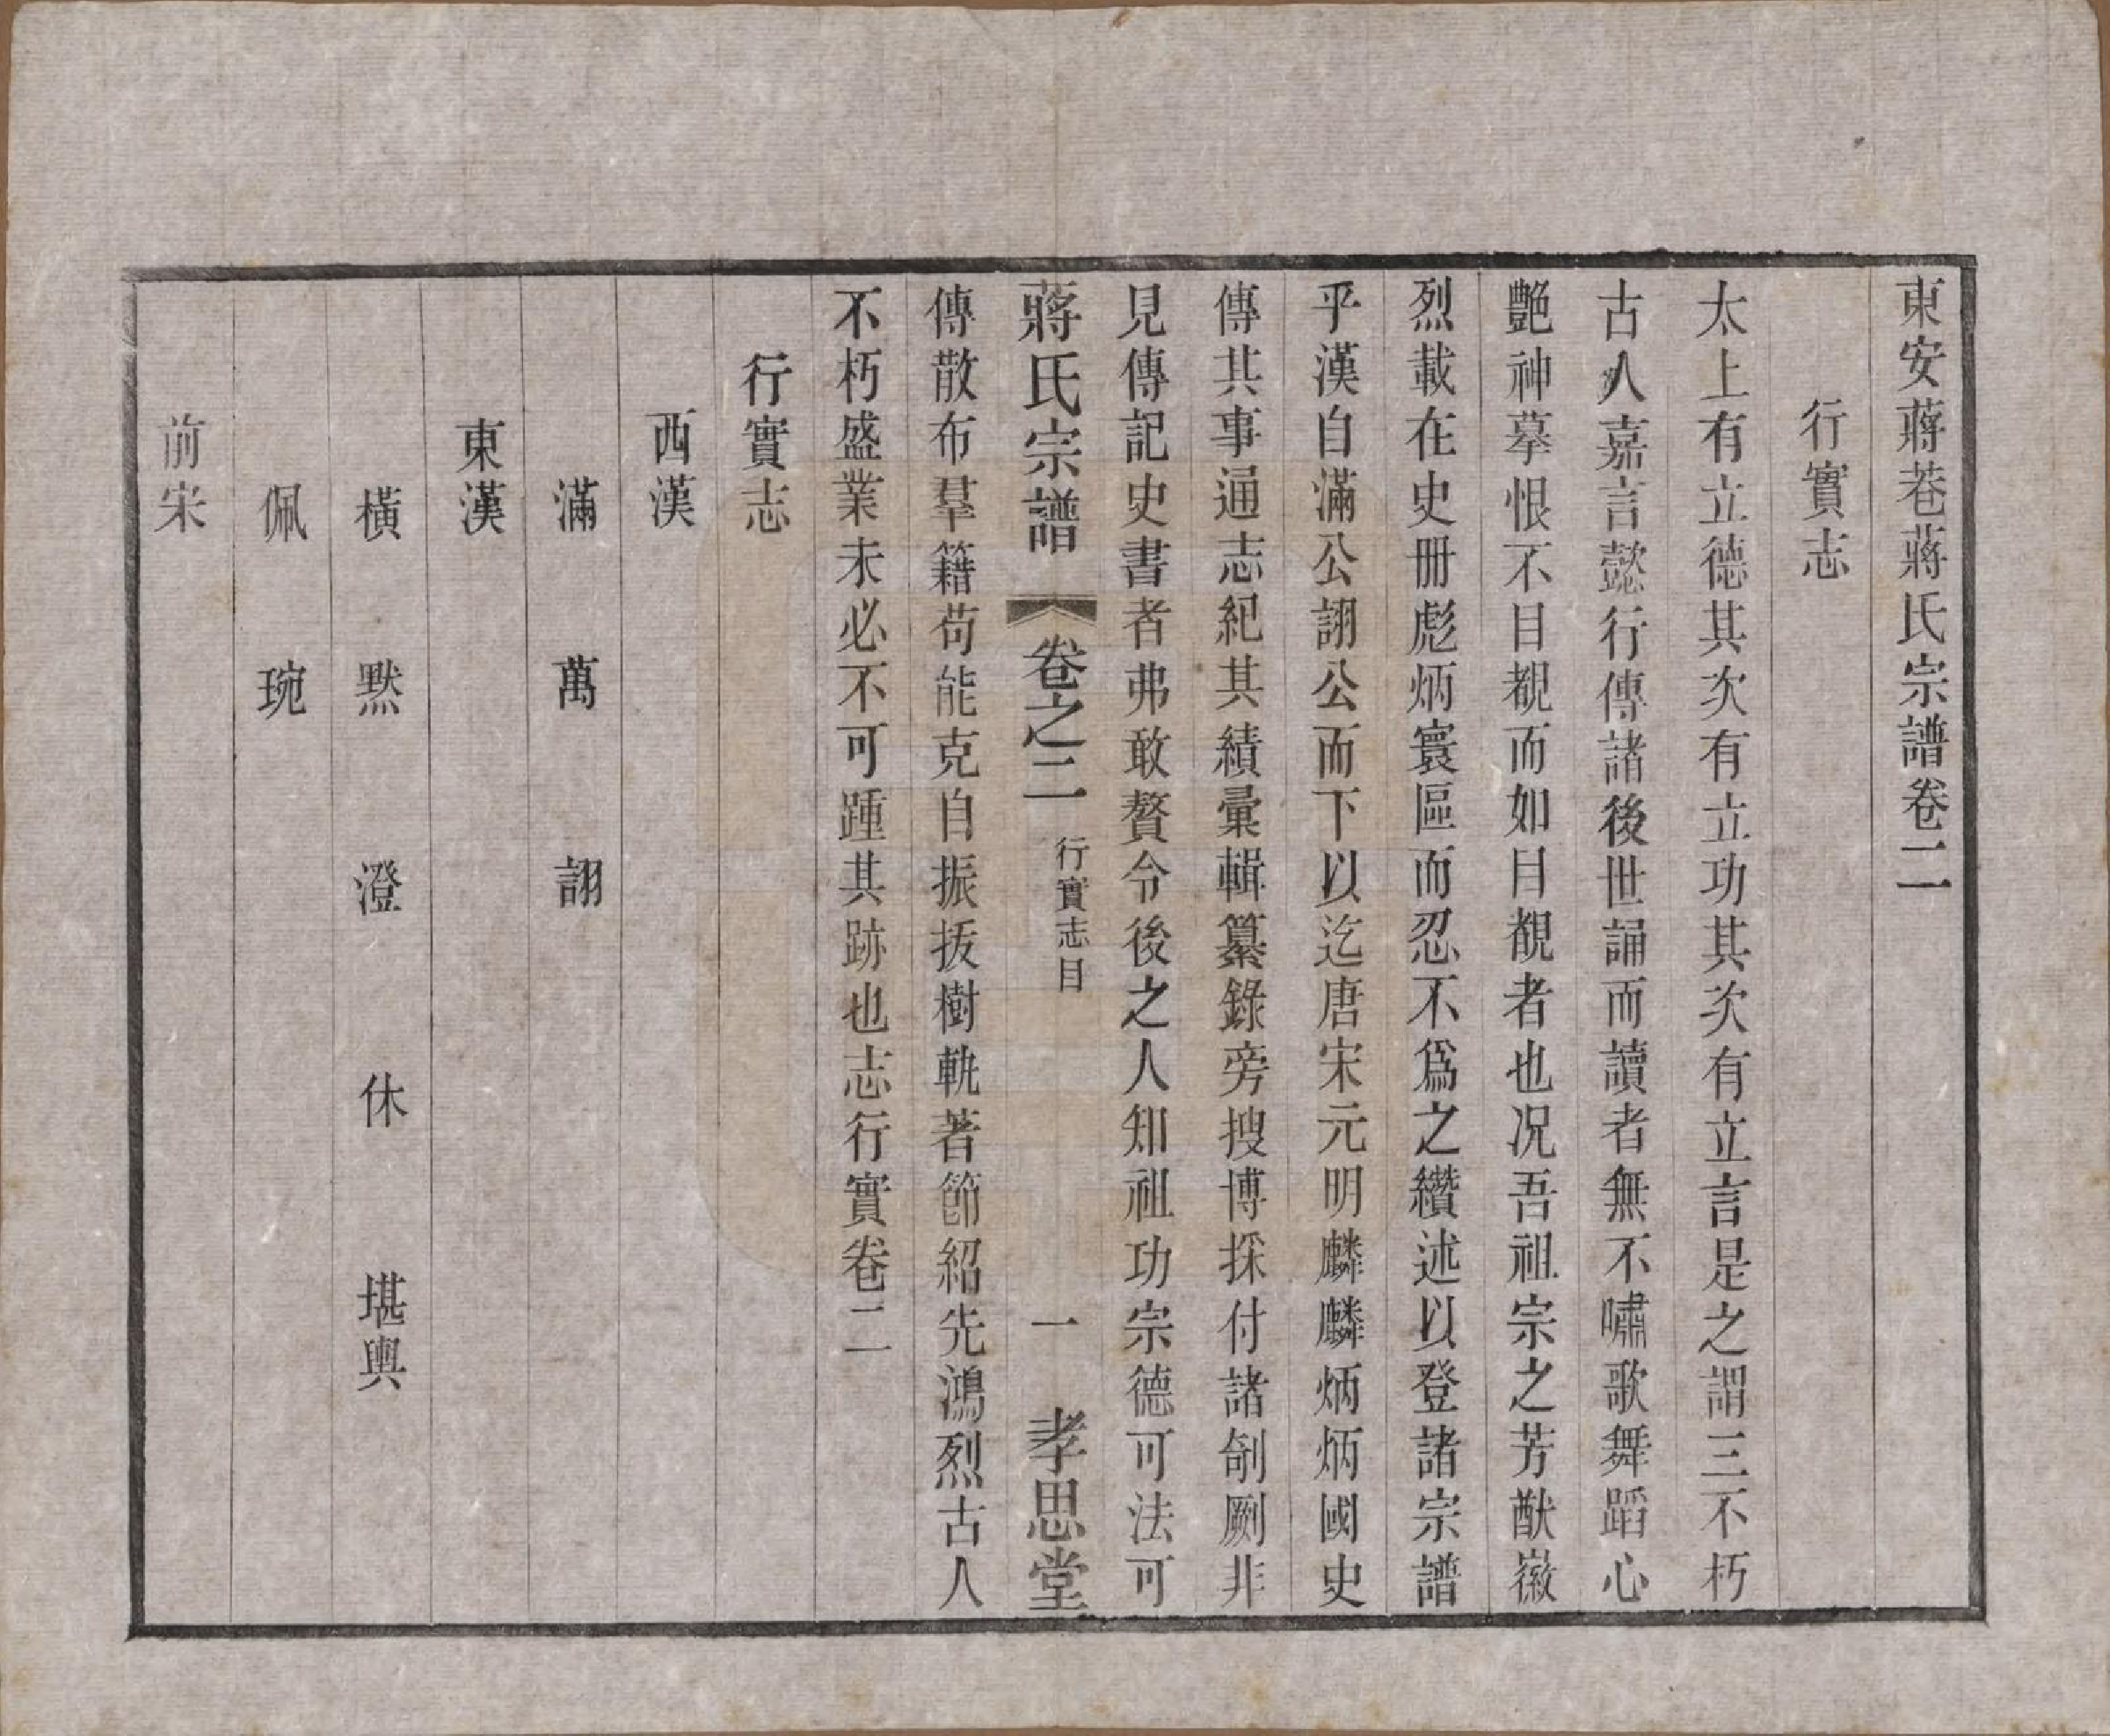 東安蔣巷蔣氏宗譜卷二
行實志
太上有立德其次有立功其次有立言是之謂三不朽
古人嘉言懿行傳諸後世誦而讀者無不嘯歌舞蹈心
艷神摹恨不目覩而如目覩者也况吾祖宗之芳猷徽
烈載在史冊彪炳寰區而忍不爲之纘述以登諸宗譜
乎漢自滿公詡公而下以迄唐宋元明麟麟炳炳國史
傳其事通志紀其績彙輯纂錄旁搜博採付諸剞劂非
見傳記史書者弗敢贅令後之人知祖功宗德可法可
蔣氏宗譜 卷之二 行實志目 一 孝思堂
傳散布羣籍苟能克自振拔樹軌著節紹先鴻烈古人
不朽盛業未必不可踵其跡也志行實卷二
行實志
西漢
滿 萬 詡
東漢
橫 默 澄 休 堪輿
佩 琬
前宋